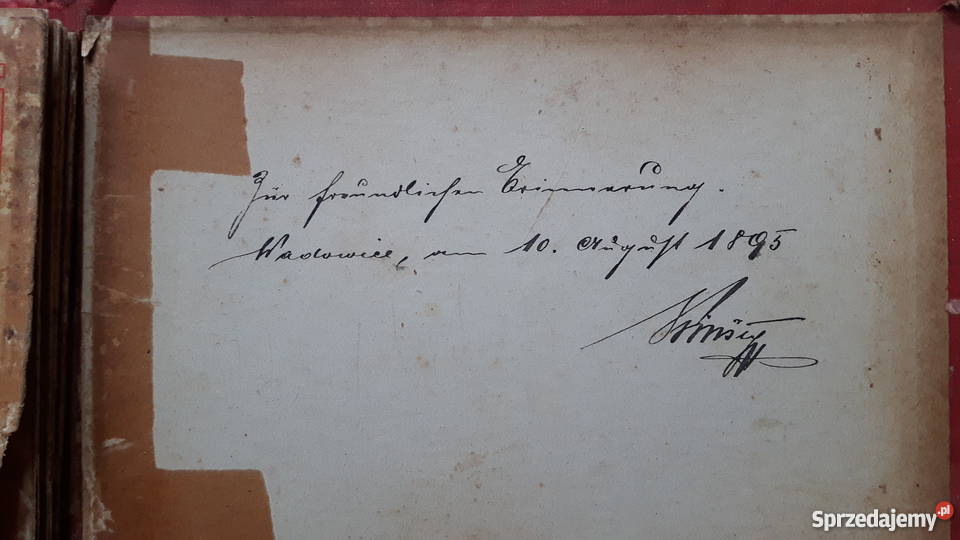 Zur freundlichen Erinnerung.
Wadowice, am 10. August 1895
Sprzedajemy.pl